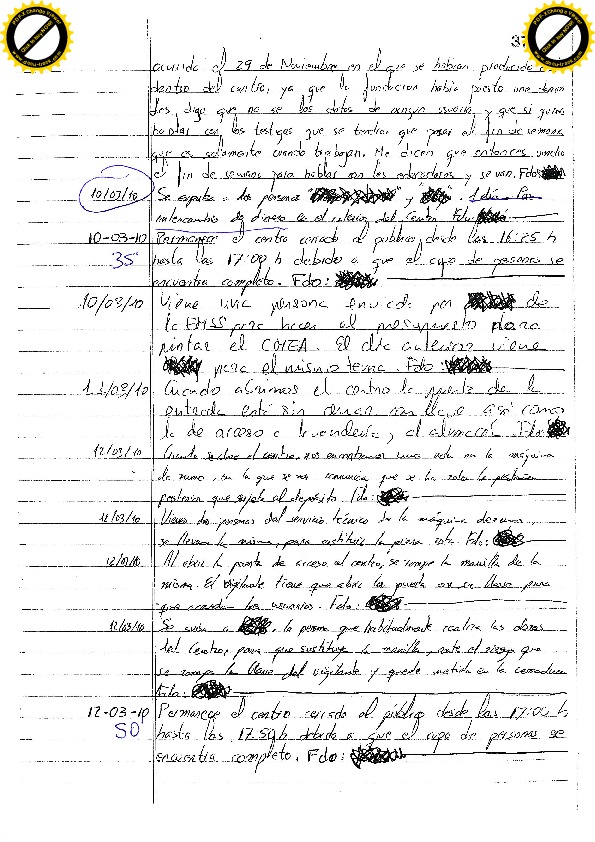 37
ocurrido el 29 de Noviembre en el que se habían producido
dentro del centro, ya que la fundación había puesto una
Les digo que no se los datos de ningún usuario, y que si quieren
hablar con los testigos que se tendrían que pasar el fin de semana
que es solamente cuando trabajan. Me dicen que entonces
el fin de semana para hablar con los y se van. Fdo:
10/03/10 Se expulsa a dos personas " " y " ".
intercambio de dinero en el interior del Centro Fdo:
10-03-10 Permanece el centro cerrado al público, desde las 16:25 h
35' hasta las 17:00 h debido a que el cupo de personas se
encuentra completo. Fdo:
10/03/10 Viene una persona enviada por de
la EMSS para hacer el presupuesto para
pintar el COIEA. El día anterior viene
para el mismo tema. Fdo:
11/03/10 Cuando abrimos el centro la puerta de la
entrada está sin cerrar con llave así como
la de acceso a lavandería, y el almacén. Fdo:
12/03/10 Cuando se abre el centro, nos encontramos una nota en la máquina
de zumo, en la que se nos comunica que se ha roto la pestaña
posterior que sujeta el depósito. Fdo:
12/03/10 Vienen dos personas del servicio técnico de la máquina de zumo,
se llevan la misma, para sustituir la pieza rota Fdo:
12/03/10 Al abrir la puerta de acceso al centro, se rompe la manilla de la
misma. El vigilante tiene que abrir la puerta con su llave para
que accedan los usuarios. Fdo:
12/03/10 Se avisa a , la persona que habitualmente realiza las obras
del Centro, para que sustituya la manilla, ante el riesgo que
se rompa la llave del vigilante y quede metida en la cerradura
Fdo:
12-03-10 Permanece el centro cerrado al público desde las 17:00 h
50' hasta las 17:50 h debido a que el cupo de personas se
encuentra completo. Fdo: